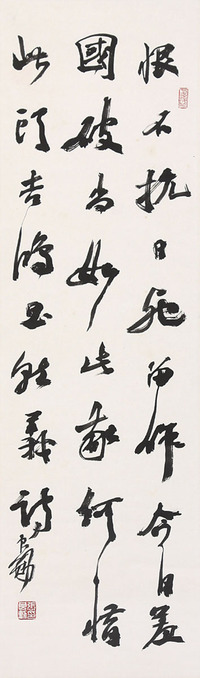 恨不抗日死留作今日羞
國破尚如此我何惜
此頭吉鴻昌就義詩